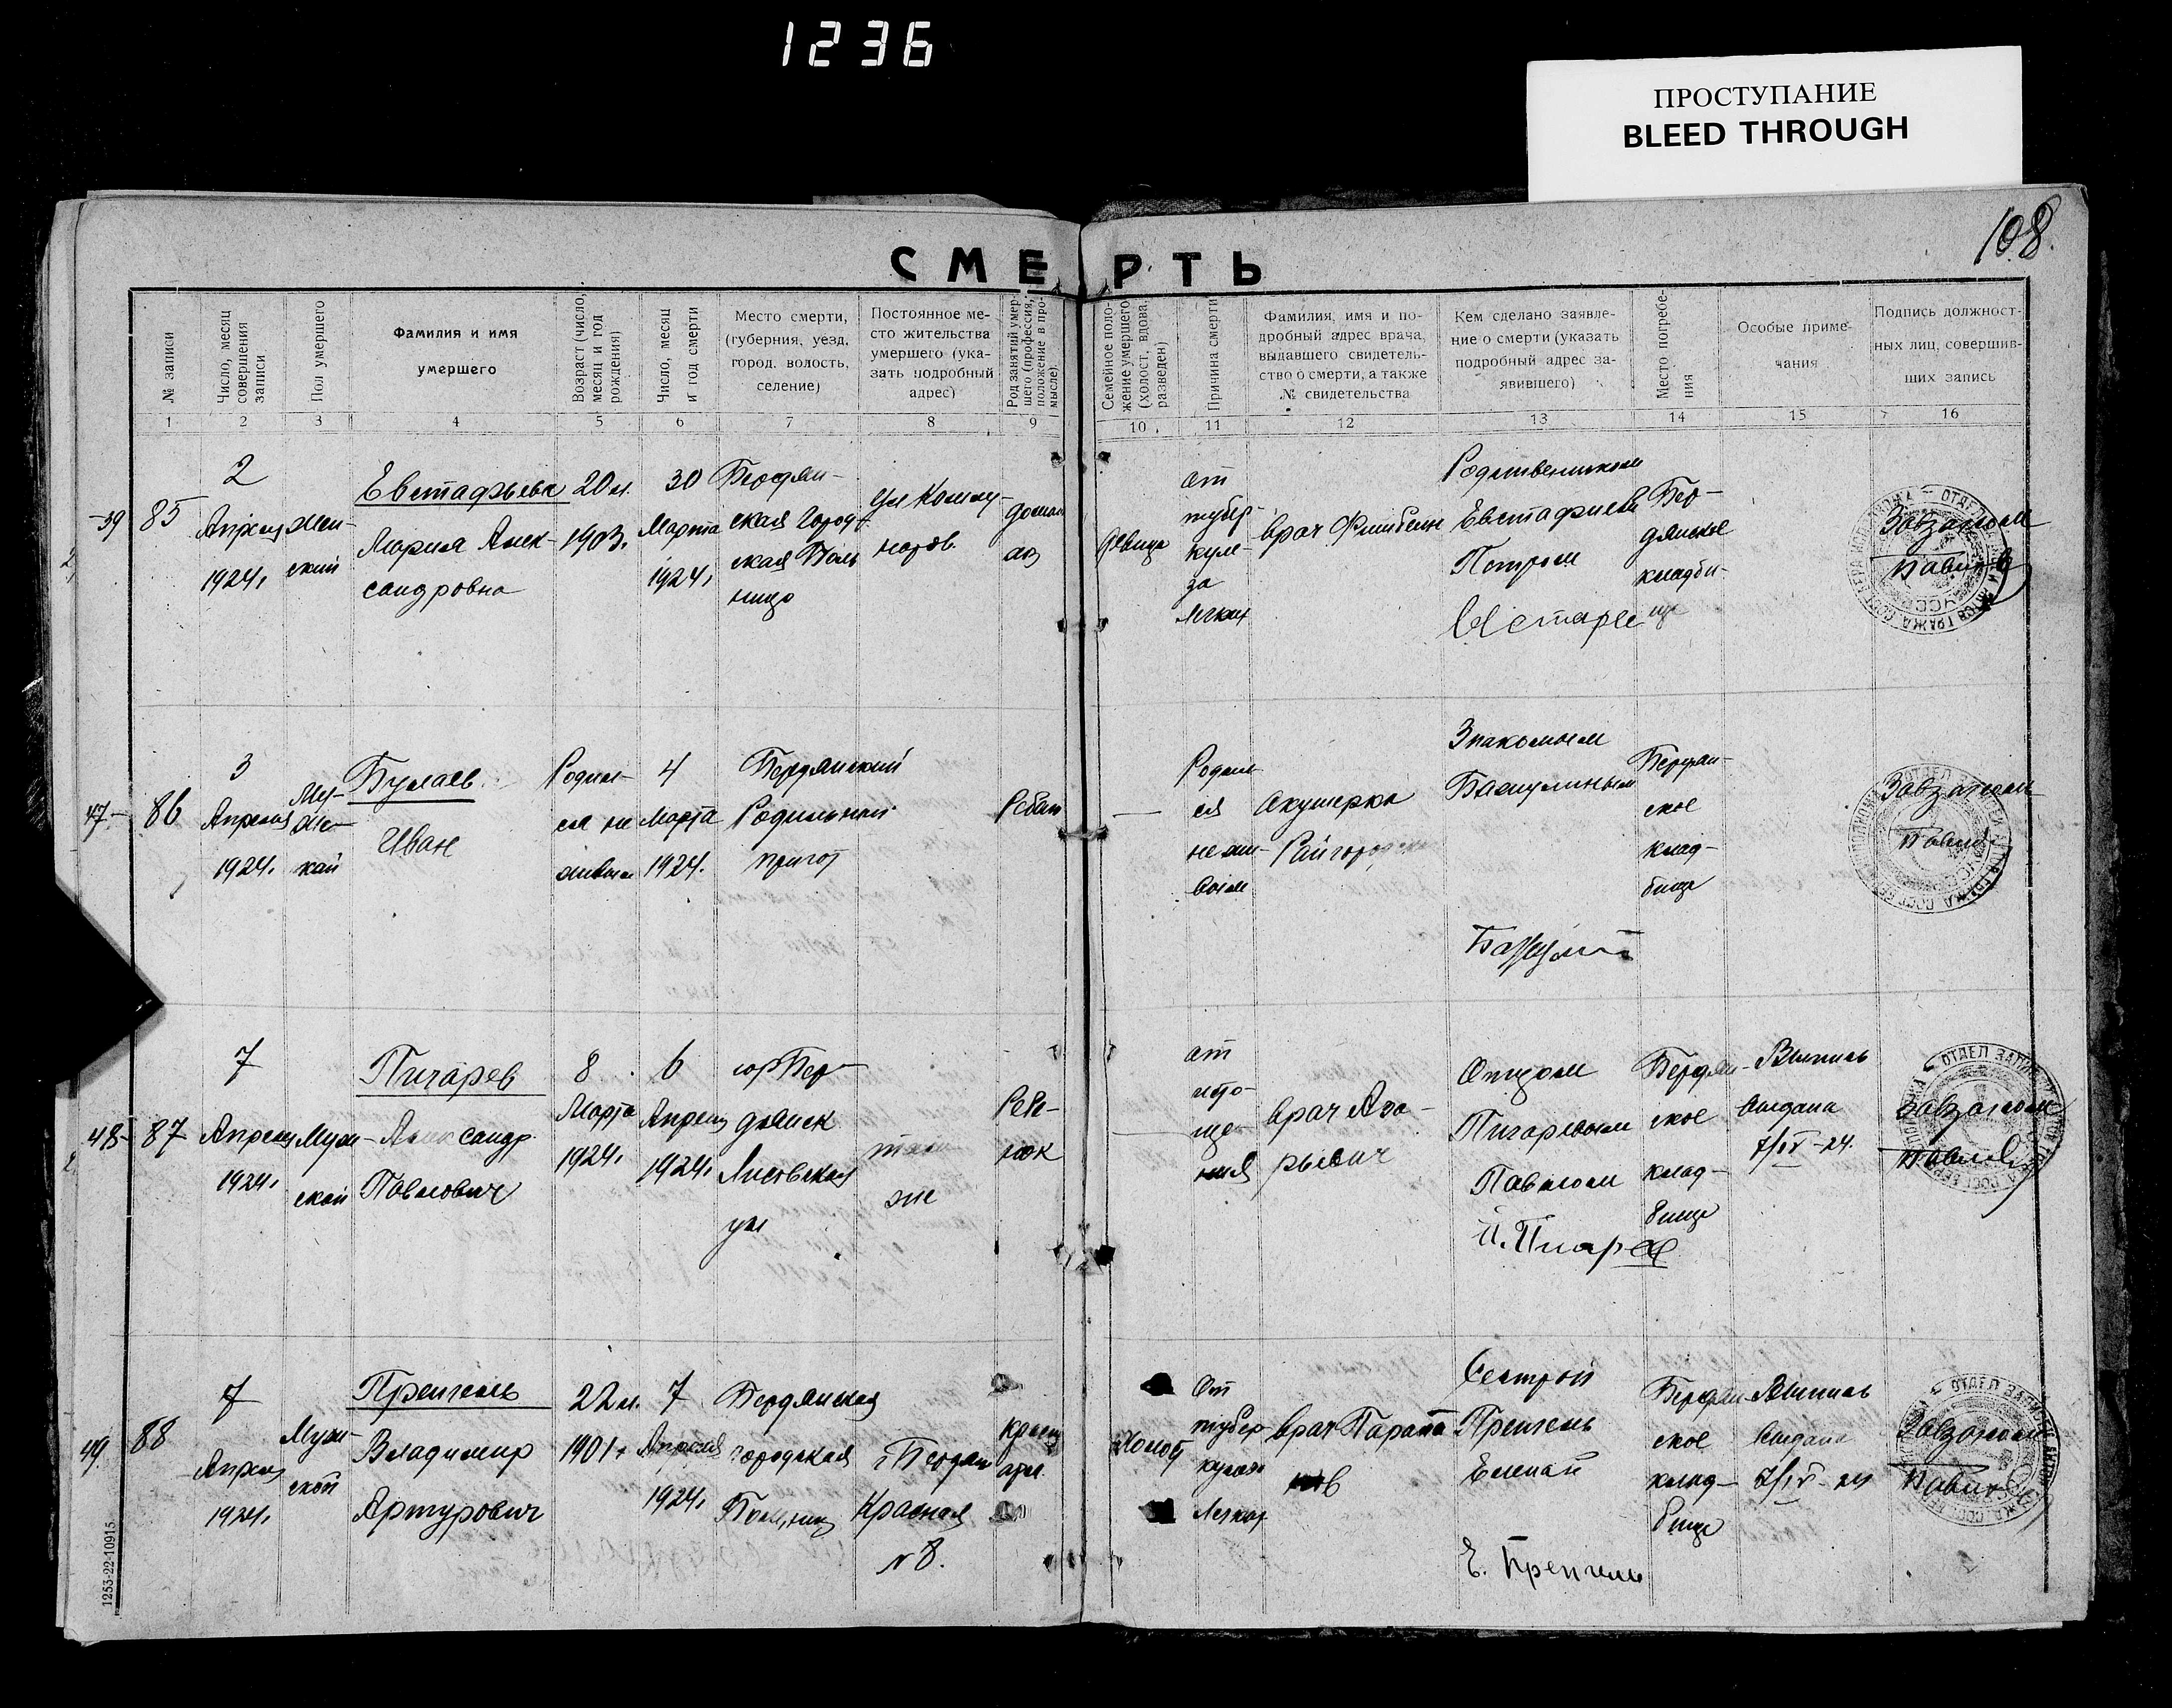 1236
ПРОСТУПАНИЕ
BLEED THROUGH
108.
СМЕРТЬ
№ записи
Число, месяц совершения записи
Пол умершего
Фамилия и имя
умершего
Возраст (число, месяц и год рождения)
Число, месяц и год смерти
Место смерти,
(губерния, уезд,
город, волость,
селение)
Постоянное ме-
сто жительства
умершего (ука-
зать подробный
адрес)
Род занятий умер-
шего (профессия,
положение в про-
мысле).
Семейное поло-
жение умершего
(холост, вдова,
разведен)
Причина смерти
Фамилия, имя и по-
дробный адрес врача,
выдавшего свидетель-
ство о смерти, а также
№ свидетельства
Кем сделано заявле-
ние о смерти (указать
подробный адрес за-
явившего)
Место погребе-
ния
Особые приме-
чания
Подпись должност-
ных лиц, совершив-
ших запись
1 2 3 4 5 6 7 8 9 10 11 12 13 14 15 16
39
85
2
Апреля
1924.
Жен-
ский
Евстафьева
Мария Алек-
сандровна
20 л.
1903.
30
Марта
1924.
Бердян-
ская Город-
ская Боль
ница
ул Комму-
наров.
девица
от
тубер-
куле-
за
легких
врач Фишбейн
Родственником
Евстафиев
Петром
Бер-
дянское
кладби-
ще
Завзагсом
47-
86
3
Апреля
1924.
Му-
же-
кай
Булаев
Иван
Родил-
ся не
живым
4
Марта
1924.
Бердянский
Родильный
приют
Родил
ся
не жи-
вым
Акушерка
Знакомым
Бердян-
ское
клад-
бище
Завзагсом
48-
87
7
Апреля
1924.
Муж-
ской
Пичарев
Александр
Павлович
8
Марта
1924.
6
Апреля
1924.
гор Бер-
дянск
ул
там
же
Реб-
нок
от
исто-
ще-
ния
врач Аза-
рьевич
Отцом
Пичаревым
Павлом
П. Пичарев
Бердян-
ское
клад-
бище
Выпись
выдана
7/IV-24.
Завзагсом
49.
88
7
Апреля
1924.
Муж-
ской
Пренгель
Владимир
Артурович
22 л.
1901.
7
Апреля
1924.
Бердянская
городская
Больниц
г. Бердян
Красная
№ 8.
Холост
От
тубер
кулеза
легких
врач
Сестрой
Пренгель
Еленай
Е. Пренгель
Бердян
ское
клад-
бище
Выпись
выдана
7/IV-24
Завзагсом
1253-22-10915